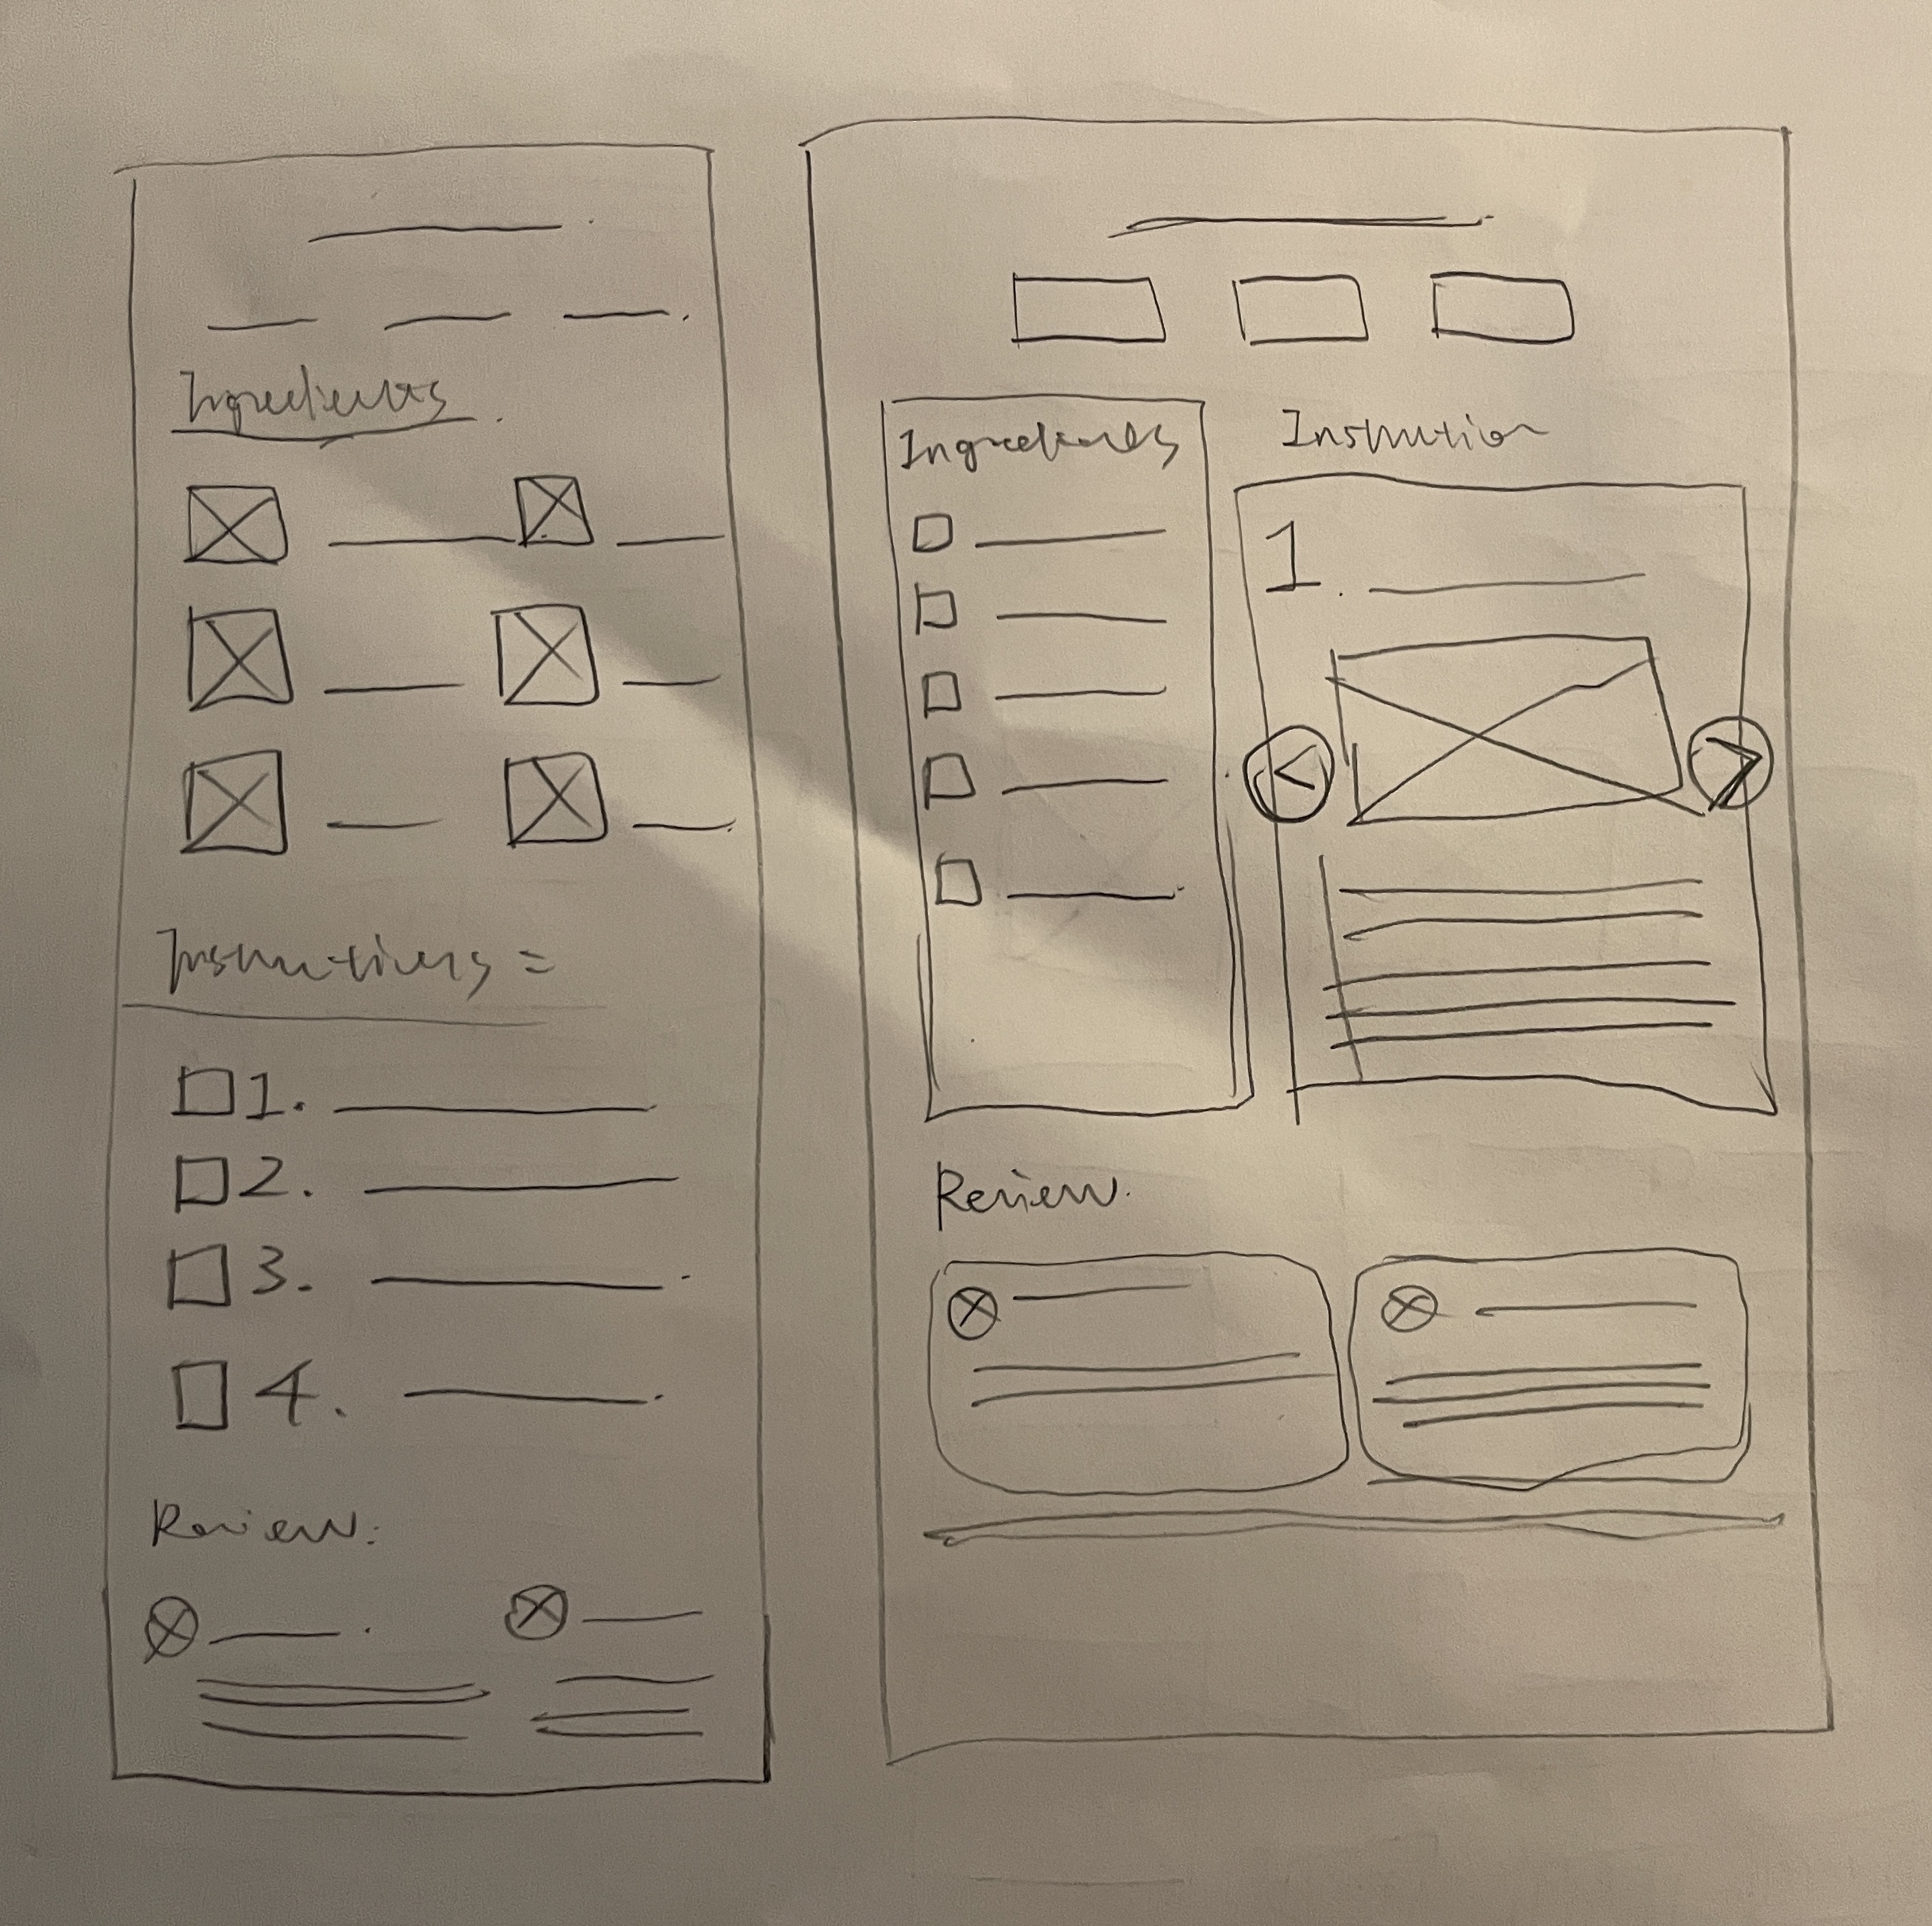 Ingredients
Instructions =
1.
2.
3.
4.
Review:
Ingredients
Instruction
1.
<
>
Review.